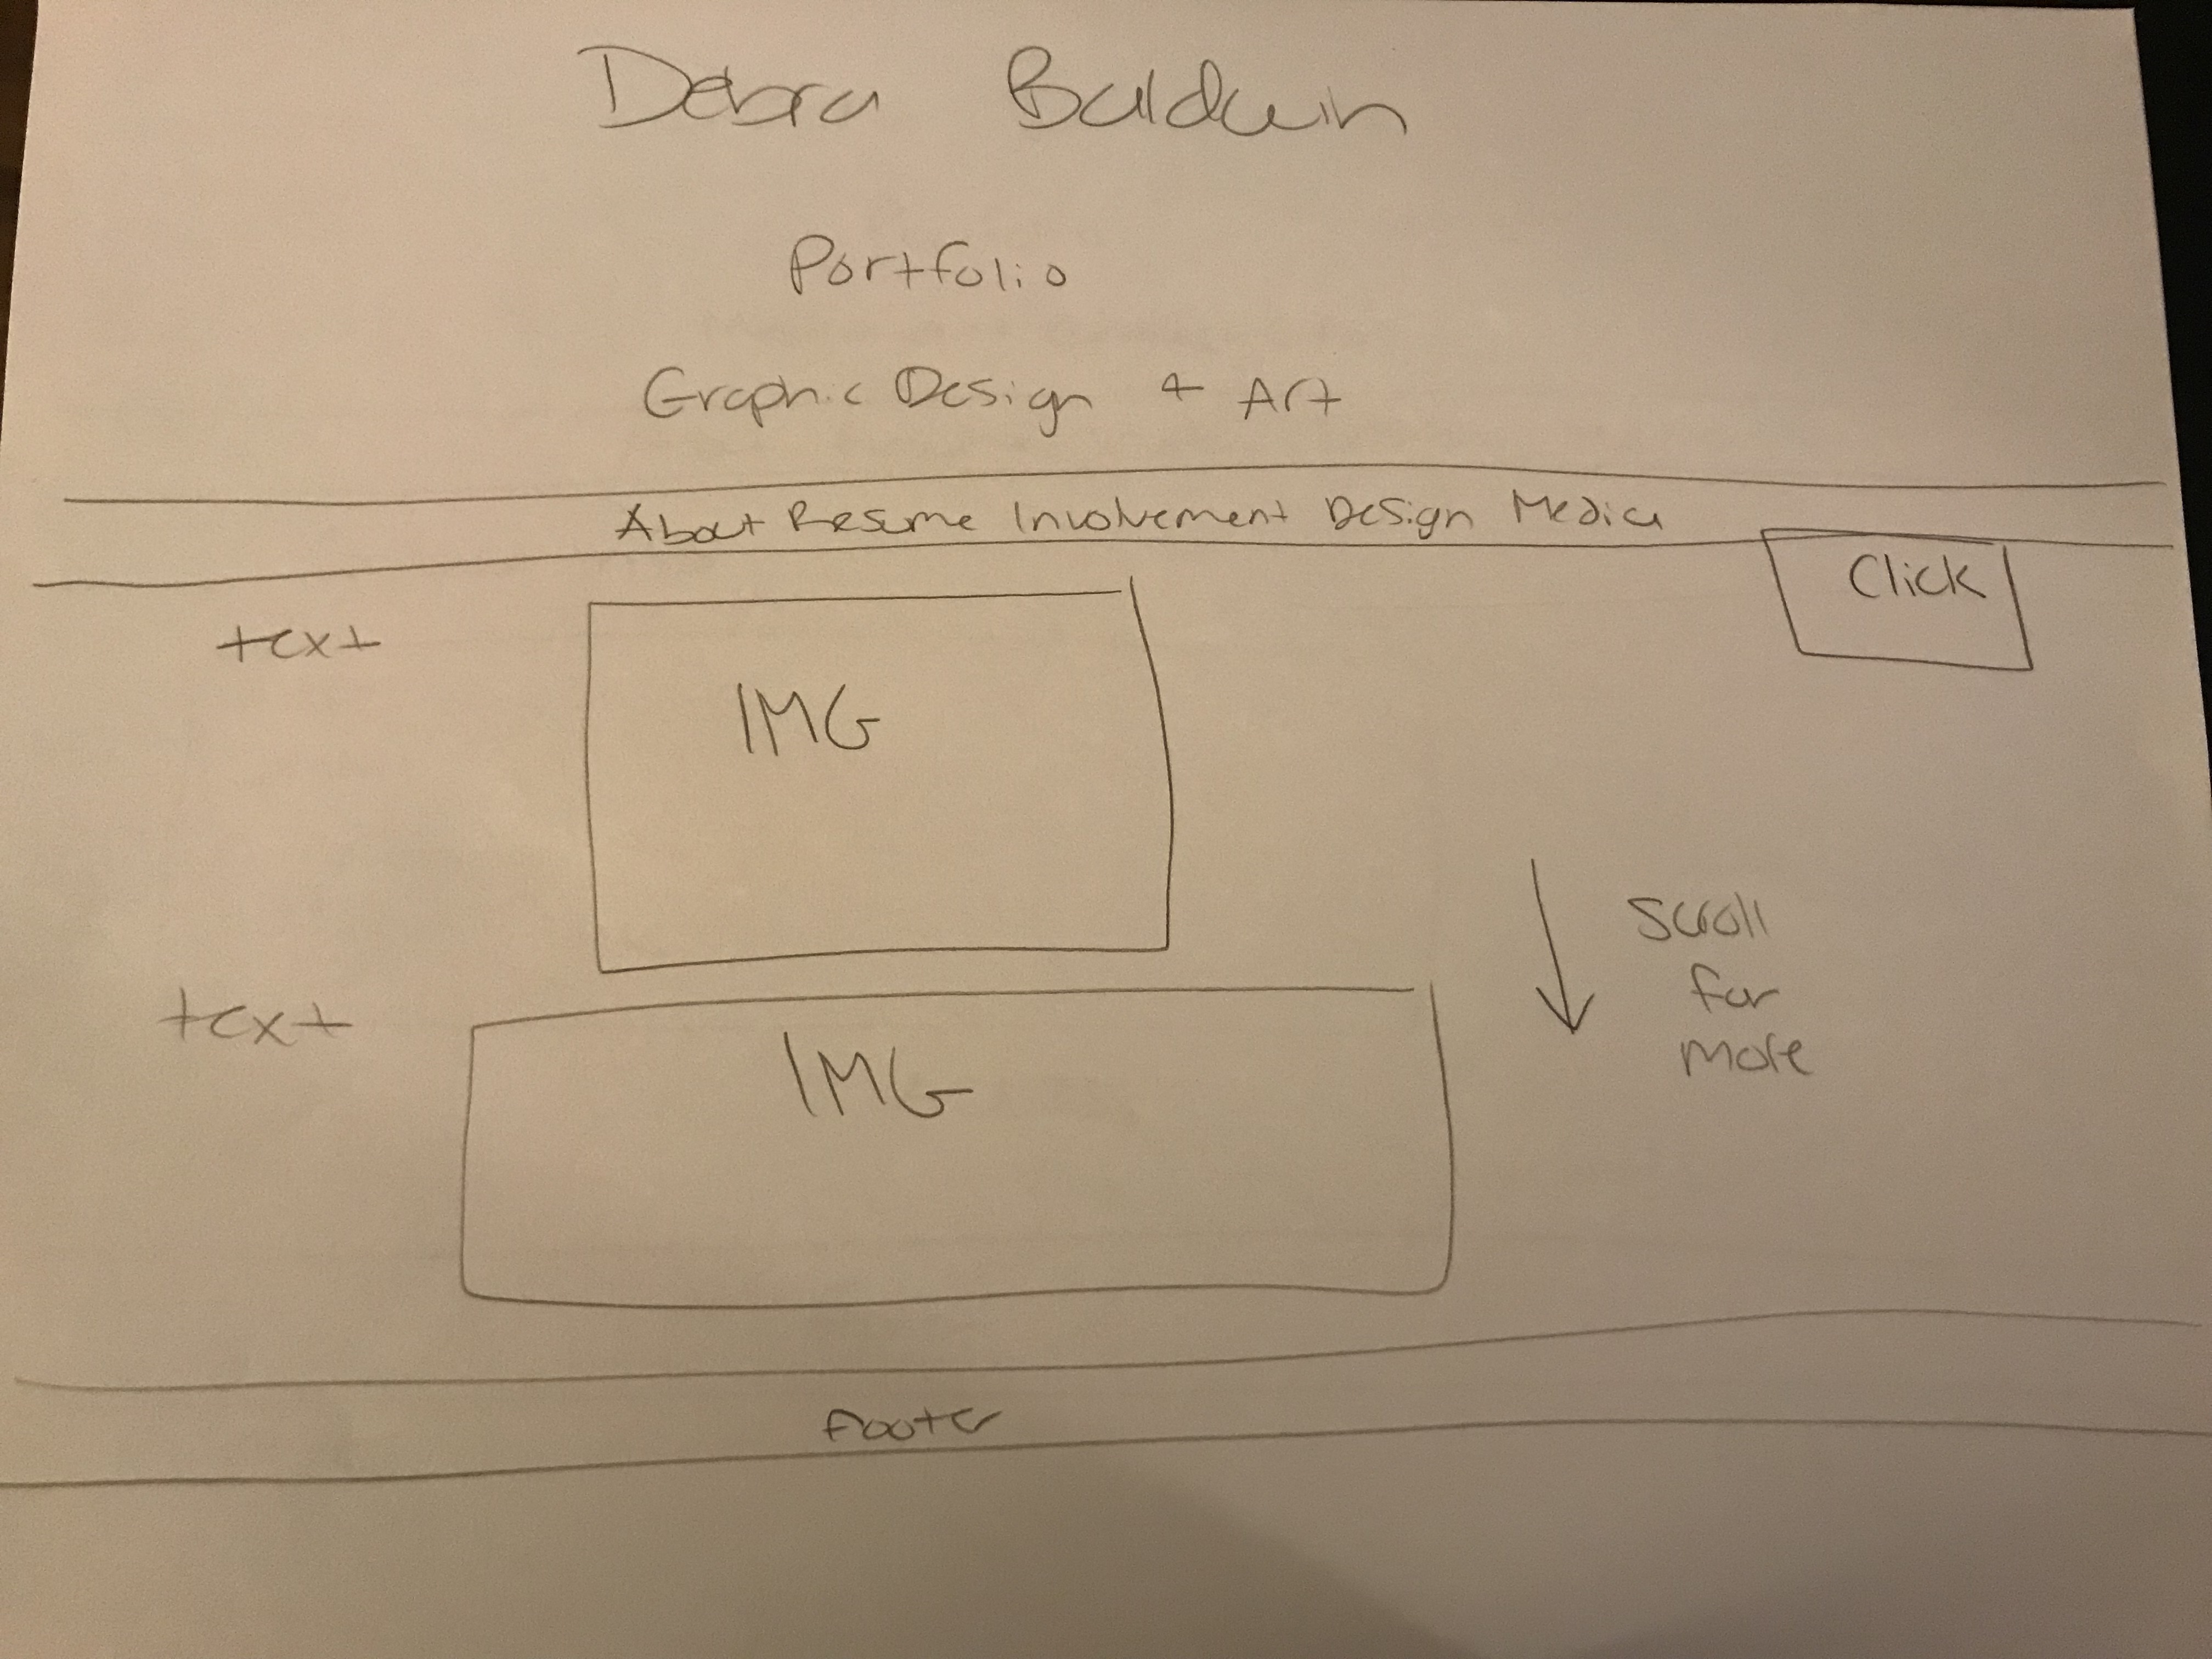 Debra Balduin
Portfolio
Graphic Design + Art
About Resume Involvement Design Media
Click
text
IMG
Scroll
for
more
text
IMG
footer